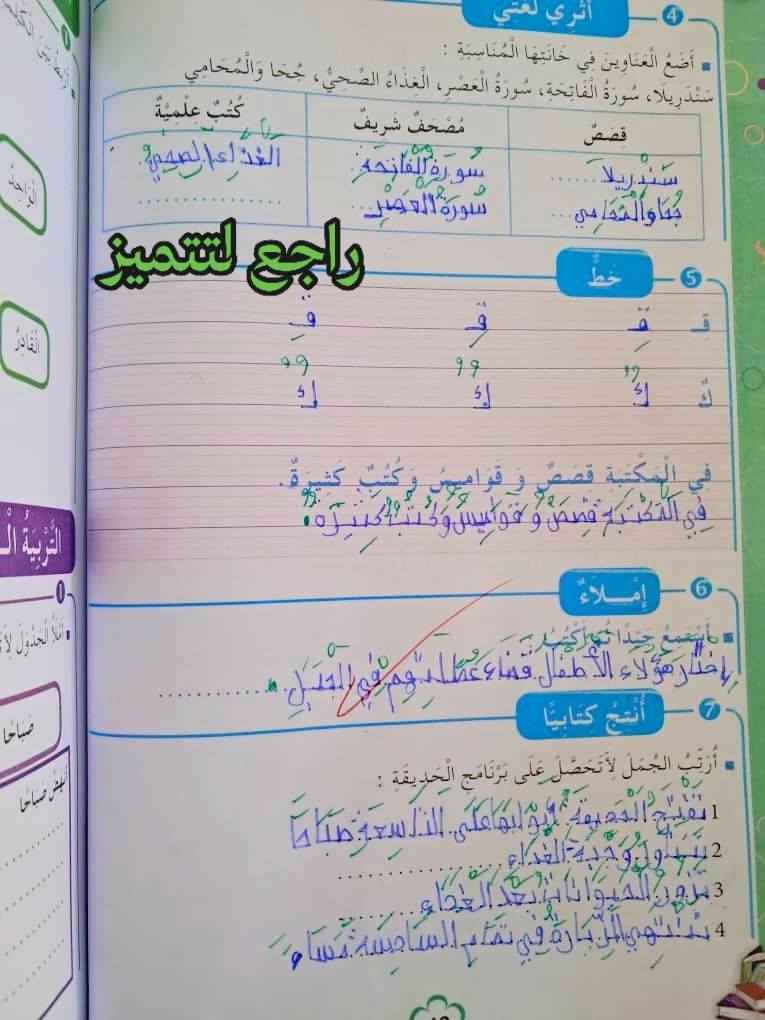 4 أُثْرِي لُغَتِي
أَضَعُ الْعَنَاوِينَ فِي خَانَتِهَا الْمُنَاسِبَةِ :
سَنْدَرِيلَا، سُورَةُ الْفَاتِحَةِ، سُورَةُ الْعَصْرِ، الْغِذَاءُ الصِّحِيُّ، جُحَا وَالْمُحَامِي
قِصَصٌ مُصْحَفٌ شَرِيفٌ كُتُبٌ عِلْمِيَّةٌ
سَنْدرِيلَا سُورَةُ الْفَاتِحَةِ الغذَاءُ الصِحِيُّ
جُحَا وَالْمُحَامِي سُورَةُ الْعَصْرِ
راجع لتتميز
5 خَطٌّ
فِي الْمَكْتَبَةِ قِصَصٌ وَ قَوَامِيسُ وَ كُتُبٌ كَثِيرَةٌ.
فِي الْمَكْتَبَةِ قِصَصٌ وَ قَوَامِيسُ وَ كُتُبٌ كَثِيرَةٌ.
6 إِمْلَاءٌ
أَسْتَمِعُ جَيِّدًا ثُمَّ أَكْتُبُ :
إِخْتَارَ هَؤُلَاءِ الأَطْفَال قَضَاءَ عُطْلَتِهِم فِي الْجَبَلِ.
7 أُنْتِجُ كِتَابِيًّا
أُرَتِّبُ الجُمَلَ لِأَتَحَصَّلَ عَلَى بَرْنَامَجِ الْحَدِيقَةِ :
1 تَفْتَحُ الْحَدِيقَةُ أَبْوَابَهَا عَلَى التَاسِعَةِ صَبَاحًا
2 تَنَاوُلُ وَجْبَةِ الْغَدَاءِ
3 الْحَيَوَانَاتِ بَعْدَ الْغَدَاءِ
4 تَنْتَهِي الزِّيَارَةُ فِي تَمَامِ السَادِسَةِ مَسَاءً
التَّرْبِيَةُ الْـ
1
صَبَاحًا
الْوَاحِدُ
الْقَادِرُ